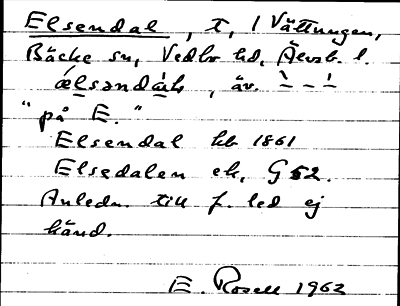 Elsendal, t, l Vättungen,
Bäcke sn, Vedbo hd, Älvsb. l.
, äv.
"på E."
Elsendal kb 1861
Elsedalen ek, G 52.
Anledn. till f. led ej
känd.
E. Rosell 1962